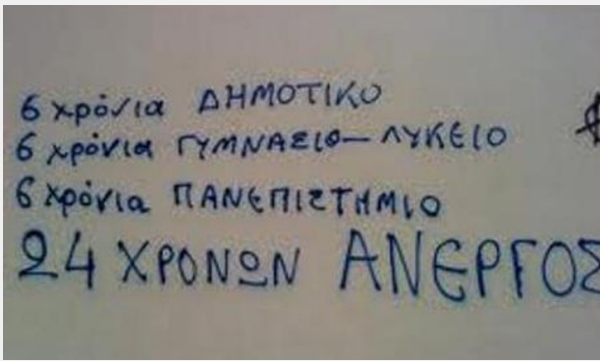 6 χρόνια ΔΗΜΟΤΙΚΟ
6 χρόνια ΓΥΜΝΑΣΙΟ-ΛΥΚΕΙΟ
6 χρόνια ΠΑΝΕΠΙΣΤΗΜΙΟ
24 ΧΡΟΝΩΝ ΑΝΕΡΓΟΣ